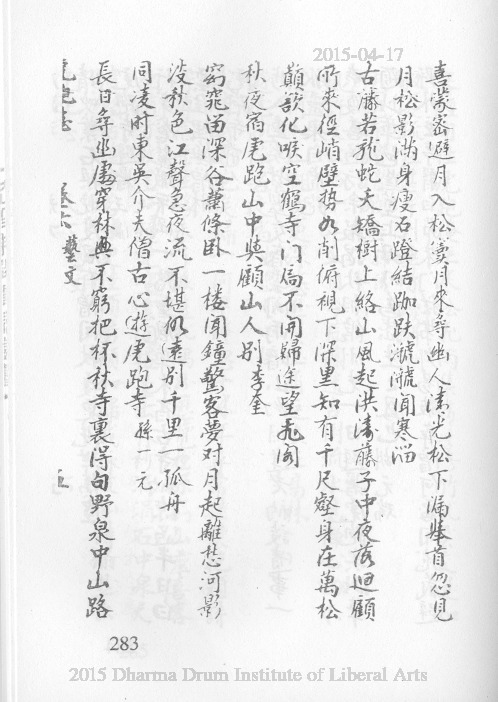 2015-04-17
喜蒙密避月入松灣月來尋幽人清光松下漏舉首忽見
月松影滿身瘦石蹬結跏趺虢虢聞寒溜
古藤若虬蛇夭矯樹上絡山風起洪濤藤子中夜落迴顧
所來徑峭壁勢如削俯視下深黑知有千尺壑身在萬松
巔欲化唳空鶴寺门局不開歸途望飛閣
秋夜宿虎跑山中與顧山人別李奎
窈窕留深谷蕭條臥一楼聞鐘驚客夢对月起離愁河影
没秋色江聲急夜流不堪仍遠別千里一孤舟
同凌时東吳介夫僧古心遊虎跑寺 孫一元
長日尋幽處穿林興不窮把杯秋寺裏得句野泉中山路
虎跑志 卷六 藝文 五
283
2015 Dharma Drum Institute of Liberal Arts